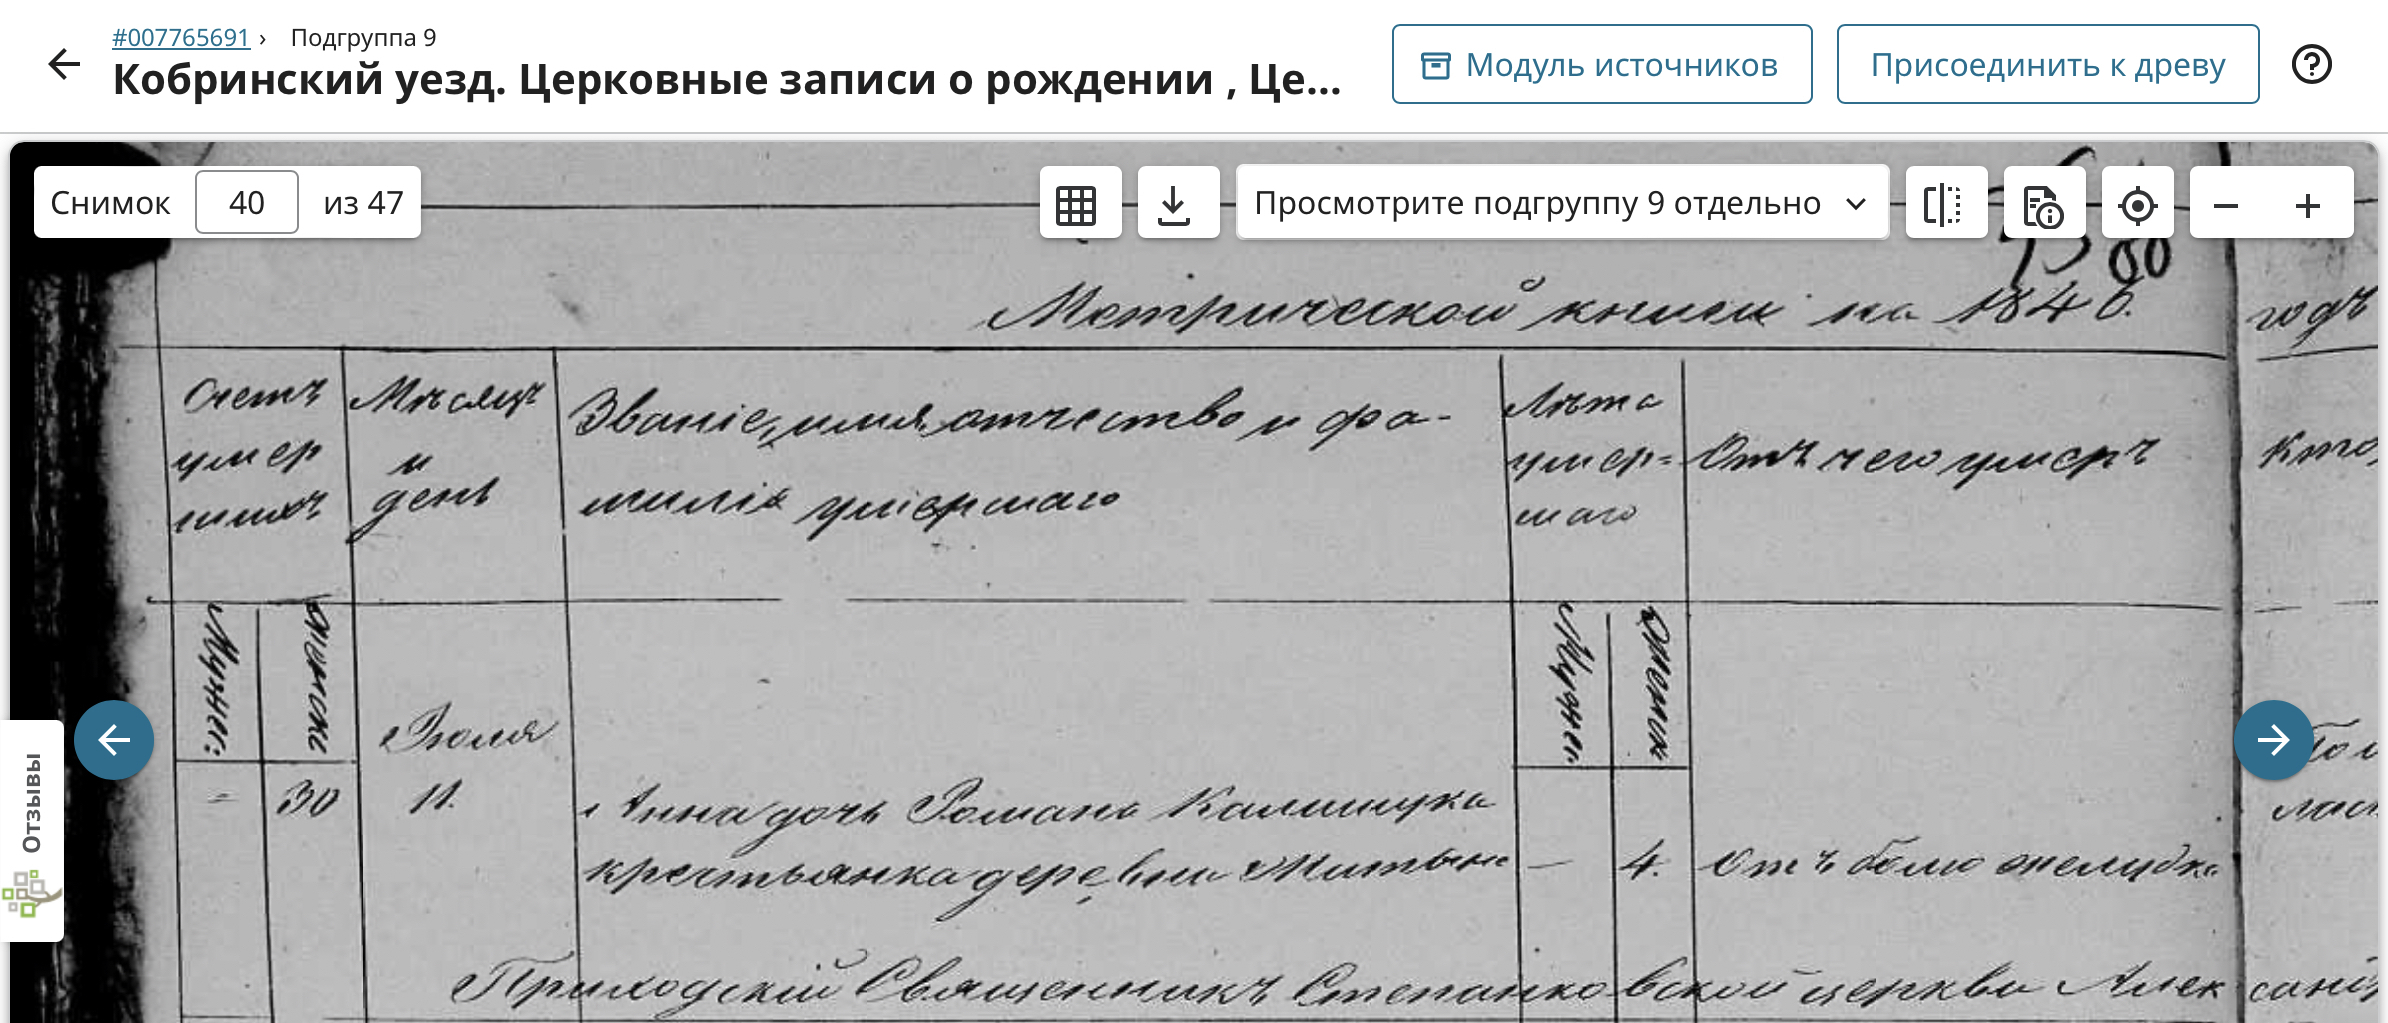 #007765691 › Подгруппа 9
Кобринский уезд. Церковные записи о рождении , Це...
Модуль источников
Присоединить к древу
Снимок 40 из 47
Просмотрите подгруппу 9 отдельно
80
Метрической книги на 1846. годъ
Счетъ умер шихъ
Мѣсяцъ и день
Званіе, имя, отчество и фа-
милія умершаго
Лѣта умер= шаго
Отъ чего умеръ
Кто
Мужес:
Женск
Іюля
Мужес.
Женск
- 30 11. Анна дочь Романа Калишука
крестьянка деревни — 4. Отъ боли желудка
Приходскій Священникъ Степанковской церкви Алек санд
Отзывы